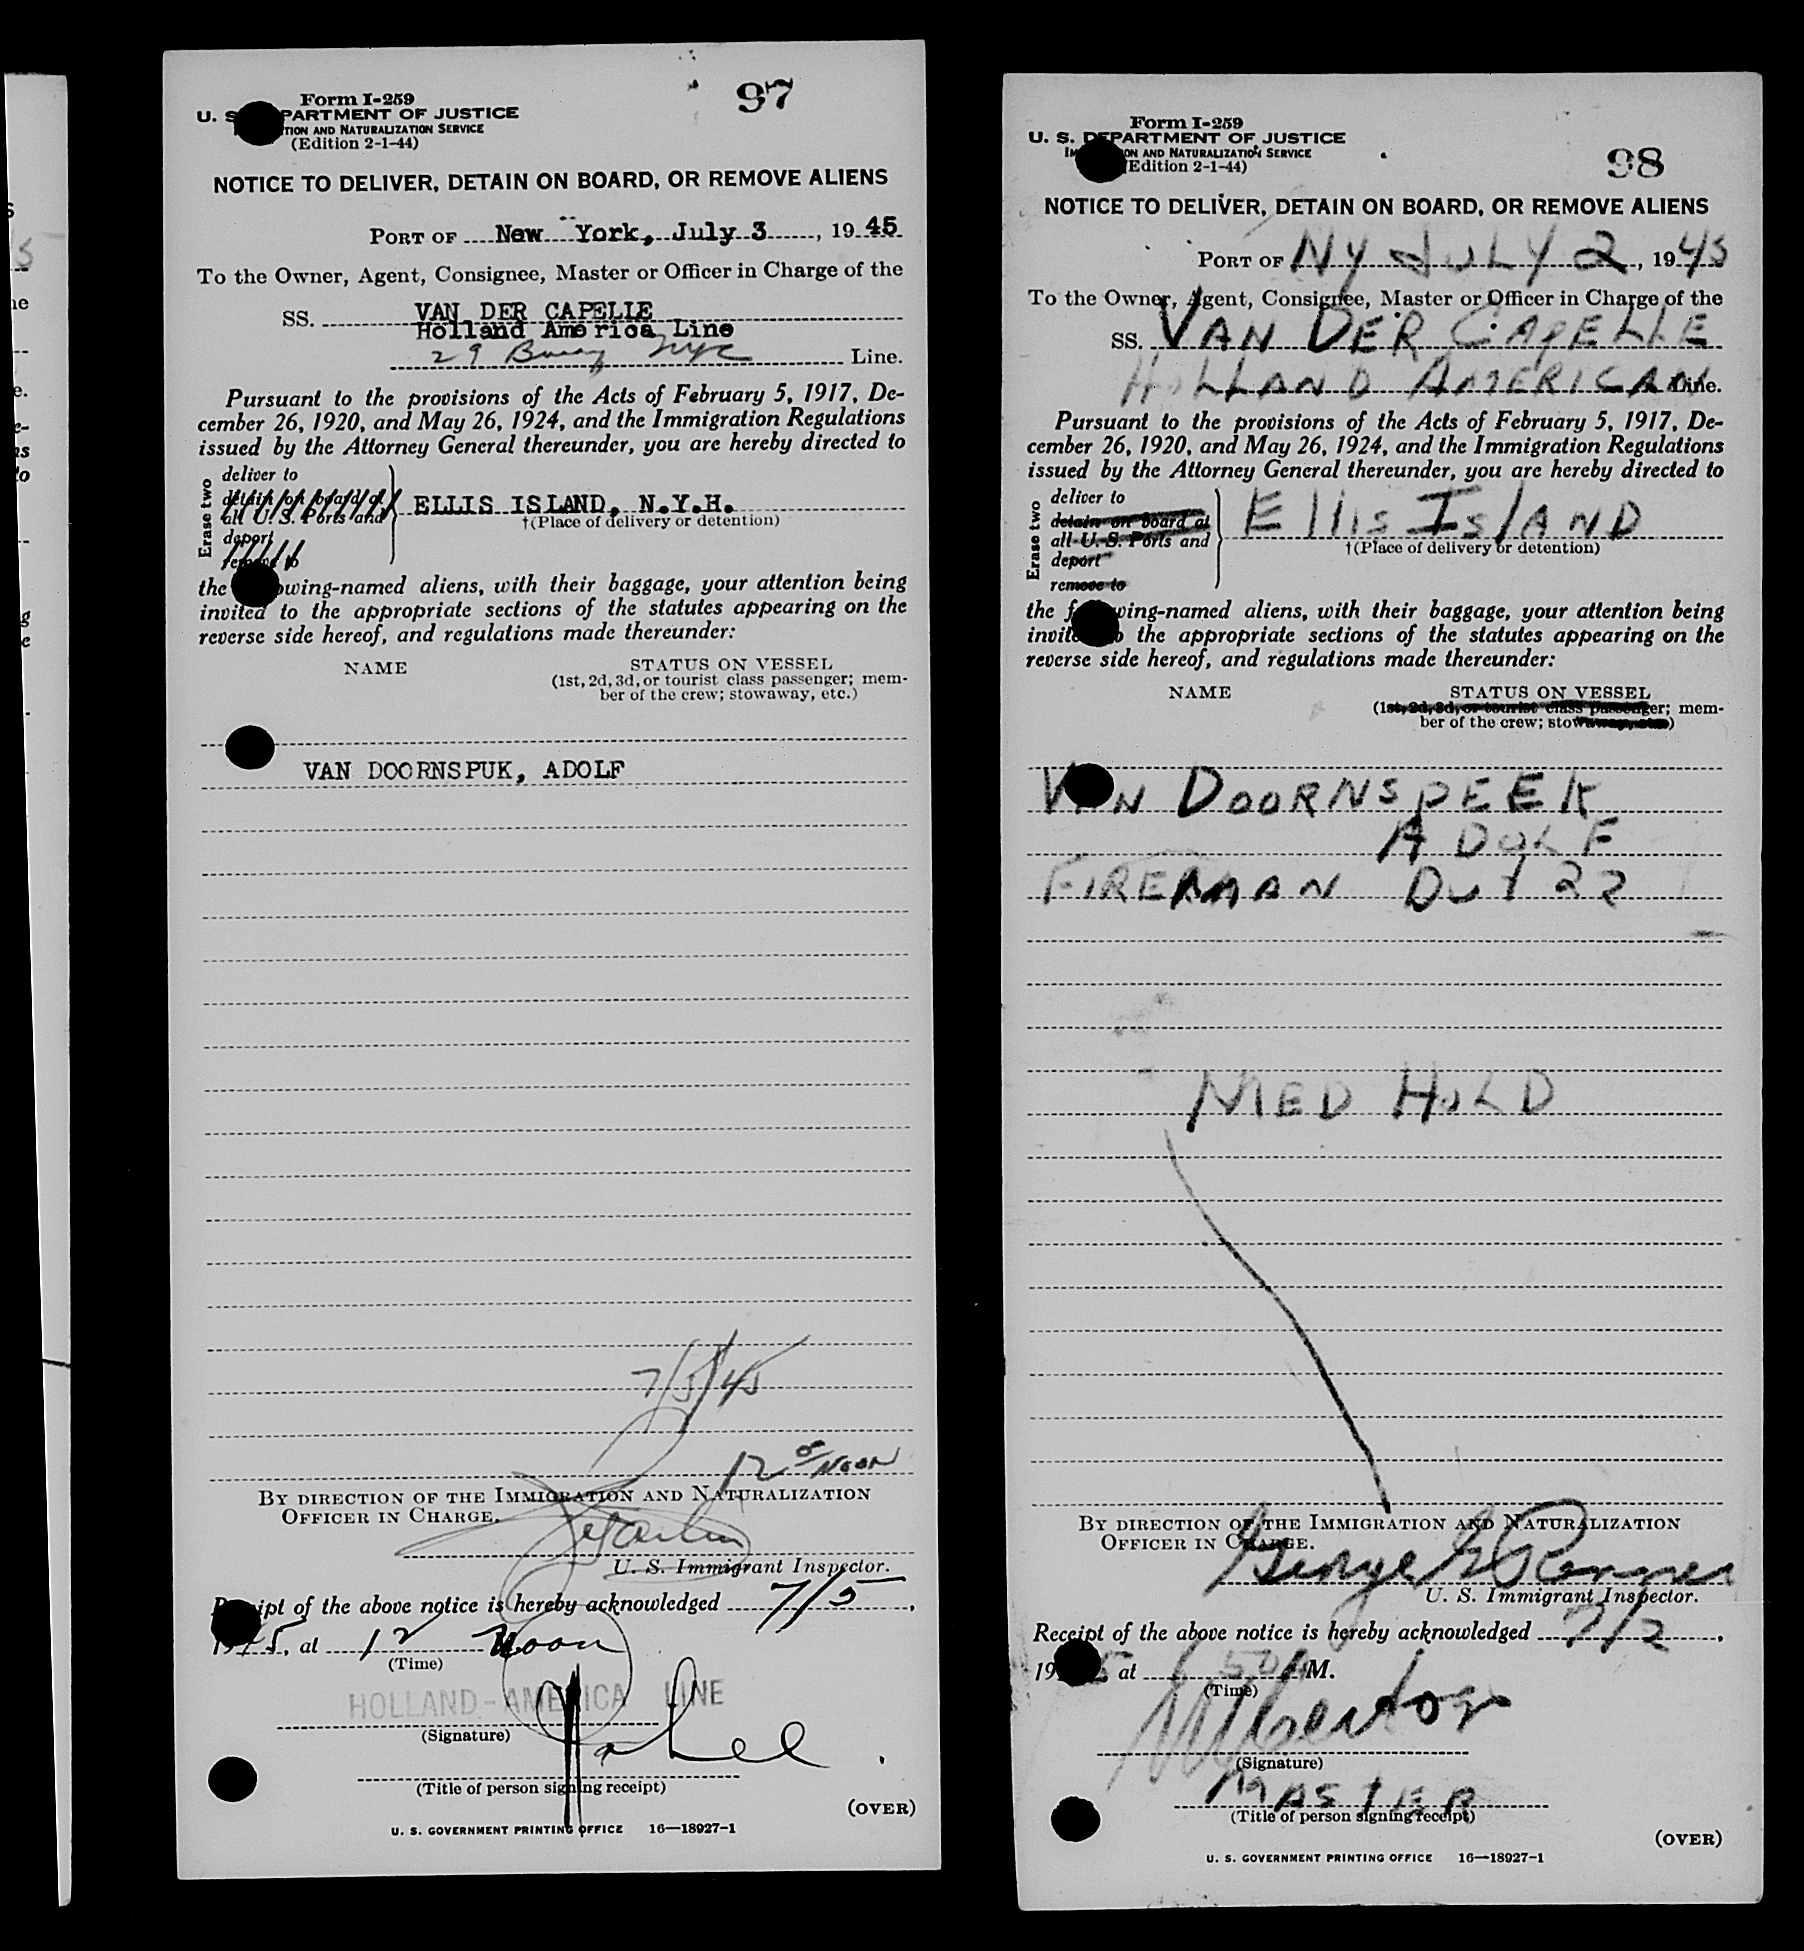 97
Form I-259
U. S. DEPARTMENT OF JUSTICE
TION AND NATURALIZATION SERVICE
(Edition 2-1-44)
NOTICE TO DELIVER, DETAIN ON BOARD, OR REMOVE ALIENS
PORT OF New York, July 3, 1945
To the Owner, Agent, Consignee, Master or Officer in Charge of the
SS. VAN DER CAPELLE
Holland America Line
29 Bway NYC Line.
Pursuant to the provisions of the Acts of February 5, 1917, De-
cember 26, 1920, and May 26, 1924, and the Immigration Regulations
issued by the Attorney General thereunder, you are hereby directed to
Erase two
deliver to
detain on board at
all U. S. Ports and
deport
remove to
ELLIS ISLAND, N.Y.H.
†(Place of delivery or detention)
the following-named aliens, with their baggage, your attention being
invited to the appropriate sections of the statutes appearing on the
reverse side hereof, and regulations made thereunder:
NAME
STATUS ON VESSEL
(1st, 2d, 3d, or tourist class passenger; mem-
ber of the crew; stowaway, etc.)
VAN DOORNSPUK, ADOLF
7/5/45
12 Noon
BY DIRECTION OF THE IMMIGRATION AND NATURALIZATION
OFFICER IN CHARGE.
U. S. Immigrant Inspector.
Receipt of the above notice is hereby acknowledged 7/5,
1945, at 12 Noon
(Time)
HOLLAND-AMERICA LINE
(Signature)
(Title of person signing receipt)
(OVER)
U. S. GOVERNMENT PRINTING OFFICE 16—18927-1
98
Form I-259
U. S. DEPARTMENT OF JUSTICE
IM ON AND NATURALIZATION SERVICE
(Edition 2-1-44)
NOTICE TO DELIVER, DETAIN ON BOARD, OR REMOVE ALIENS
PORT OF NY JULY 2, 1945
To the Owner, Agent, Consignee, Master or Officer in Charge of the
SS. VAN DER CAPELLE
HOLLAND AMERICAN Line.
Pursuant to the provisions of the Acts of February 5, 1917, De-
cember 26, 1920, and May 26, 1924, and the Immigration Regulations
issued by the Attorney General thereunder, you are hereby directed to
Erase two
deliver to
detain on board at
all U. S. Ports and
deport
remove to
Ellis Island
†(Place of delivery or detention)
the following-named aliens, with their baggage, your attention being
invited to the appropriate sections of the statutes appearing on the
reverse side hereof, and regulations made thereunder:
NAME
STATUS ON VESSEL
(1st, 2d, 3d, or tourist class passenger; mem-
ber of the crew; stowaway, etc.)
VAN DOORNSPEEK
ADOLF
FIREMAN DUT 22
MED HOLD
BY DIRECTION OF THE IMMIGRATION AND NATURALIZATION
OFFICER IN CHARGE.
George
U. S. Immigrant Inspector.
Receipt of the above notice is hereby acknowledged 7/2,
1945 at M.
(Time)
(Signature)
MASTER
(Title of person signing receipt)
(OVER)
U. S. GOVERNMENT PRINTING OFFICE 16—18927-1